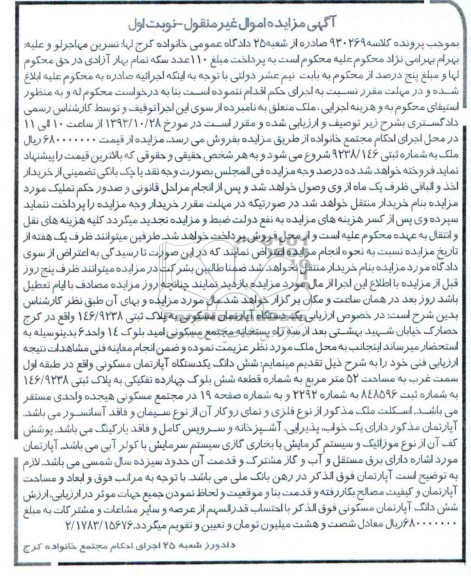 آگهی مزایده اموال غیر منقول-نوبت اول
بموجب پرونده کلاسه ۹۳۰۲۶۹ صادره از شعبه ۲۵ دادگاه عمومی خانواده کرج لها: نسرین مهاجرلو و علیه:
بهرام بهرامی نژاد محکوم علیه محکوم است به پرداخت مبلغ ۱۱۰عدد سکه تمام بهار آزادی در حق محکوم
لها و مبلغ پنج درصد از محکوم به بابت نیم عشر دولتی با توجه به اینکه اجرائیه صادره به محکوم علیه ابلاغ
شده و در مهلت مقرر نسبت به اجرای حکم اقدام ننموده است بنا به درخواست محکوم له و به منظور
استیفای محکوم به و هزینه اجرایی ، ملک متعلق به نامبرده از سوی این اجرا توقیف و توسط کارشناس رسمی
دادگستری بشرح زیر توصیف و ارزیابی شده و مقرر است در مورخ ۱۳۹۳/۱۰/۲۸ از ساعت ۱۰ الی ۱۱
در محل اجرای احکام مجتمع خانواده از طریق مزایده بفروش می رسد. مزایده از قیمت ۶۸۰۰۰۰۰۰۰ ریال
ملک به شماره ثبتی ۹۲۳۸/۱۴۶ شروع می شود و به هر شخص حقیقی و حقوقی که بالاترین قیمت را پیشنهاد
نماید فروخته خواهد شد ده درصد وجه مزایده فی المجلس بصورت وجه نقد یا چک بانکی تضمینی از خریدار
اخذ و الباقی ظرف یک ماه از وی وصول خواهد شد و پس از انجام مراحل قانونی و صدور حکم تملیک مورد
مزایده بنام خریدار منتقل خواهد شد. در صورتیکه در مهلت مقرر خریدار وجه مزایده را پرداخت ننماید
سپرده وی پس از کسر هزینه های مزایده به نفع دولت ضبط و مزایده تجدید میگردد کلیه هزینه های نقل
و انتقال به عهده محکوم علیه است و از محل فروش پرداخت خواهد شد. طرفین میتوانند ظرف یک هفته از
تاریخ مزایده نسبت به نحوه انجام مزایده اعتراض نمایند که در این صورت تا رسیدگی به اعتراض از سوی
دادگاه مورد مزایده بنام خریدار منتقل نخواهد شد ضمنا طالبین بشرکت در مزایده میتوانند ظرف پنج روز
قبل از مزایده با اطلاع این اجرا از مال مورد مزایده بازدید نمایند چنانچه روز مزایده مصادف با ایام تعطیل
باشد روز بعد در همان ساعت و مکان برگزار خواهد شد. مال مورد مزایده و بهای آن طبق نظر کارشناس
بدین شرح است: در خصوص ارزیابی یک دستگاه آپارتمان مسکونی به پلاک ثبتی ۱۴۶/۹۲۳۸ واقع در کرج
حصارک خیابان شهید بهشتی بعد از سه راه پستخانه مجتمع مسکونی امید بلوک ۱۴ واحد ۶ بدینوسیله به
استحضار میرساند اینجانب به محل ملک مورد نظر عزیمت نموده و ضمن انجام معاینه فنی مشاهدات نتیجه
ارزیابی فنی خود را به شرح ذیل تقدیم مینمایم: شش دانگ یکدستگاه آپارتمان مسکونی واقع در طبقه اول
سمت غرب به مساحت ۵۲ متر مربع به شماره قطعه شش بلوک چهارده تفکیکی به پلاک ثبتی ۱۴۶/۹۲۳۸
به شماره ثبت ۸۴۸۵۹۶ به شماره ۲۲۹۲ و به شماره صفحه ۱۹ در مجتمع مسکونی هیجده واحدی مستقر
می باشد. اسکلت ملک مذکور از نوع فلزی و نمای روکار آن از نوع سیمان و فاقد آسانسور می باشد.
آپارتمان مذکور دارای یک خواب، پذیرایی، آشپزخانه و سرویس کامل و فاقد پارکینگ می باشد. پوشش
کف آن از نوع موزائیک و سیستم گرمایش با بخاری گازی سیستم سرمایش با کولر آبی می باشد. آپارتمان
مورد اشاره دارای برق مستقل و آب و گاز مشترک و قدمت آن حدود سیزده سال شمسی می باشد. لازم
به توضیح است آپارتمان فوق الذکر در رهن بانک ملی می باشد. با توجه به مراتب فوق و ابعاد و مساحت
آپارتمان و کیفیت مصالح بکاررفته و قدمت بنا و موقعیت و لحاظ نمودن جمیع جهات موثر در ارزیابی، ارزش
شش دانگ آپارتمان مسکونی فوق الذکر با احتساب قدرالسهم از عرصه و سایر مشاعات و مشترکات به مبلغ
۶۸۰۰۰۰۰۰۰ریال معادل شصت و هشت میلیون تومان و تعیین و تقویم میگردد.۲/۱۷۸۳/۱۵۶۷۶
دادورز شعبه ۲۵ اجرای احکام مجتمع خانواده کرج